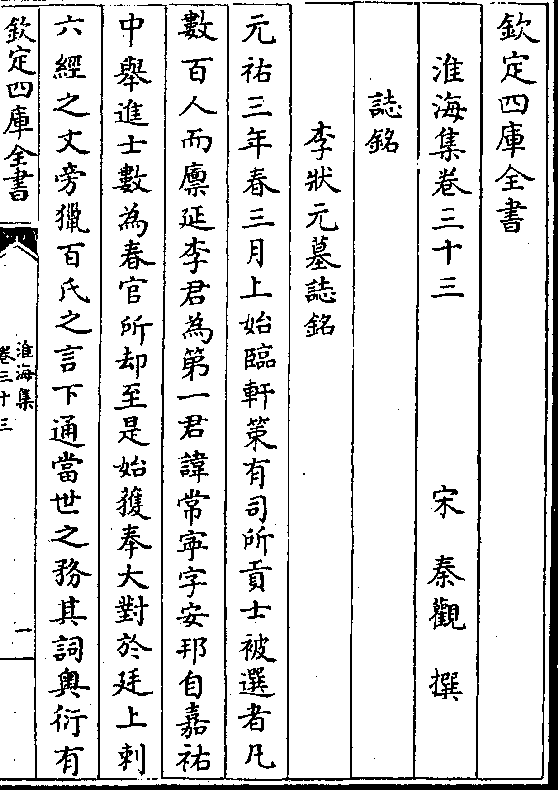 欽定四庫全書
淮海集卷三十三 宋 秦觀 撰
誌銘
李狀元墓誌銘
元祐三年春三月上始臨軒策有司所貢士被選者凡
數百人而廪延李君為第一君諱常寕字安邦自嘉祐
中舉進士數為春官所却至是始獲奉大對於廷上刺
六經之文旁獵百氏之言下通當世之務其詞奥衍有
欽定四庫全書
淮海集
卷三十三
一